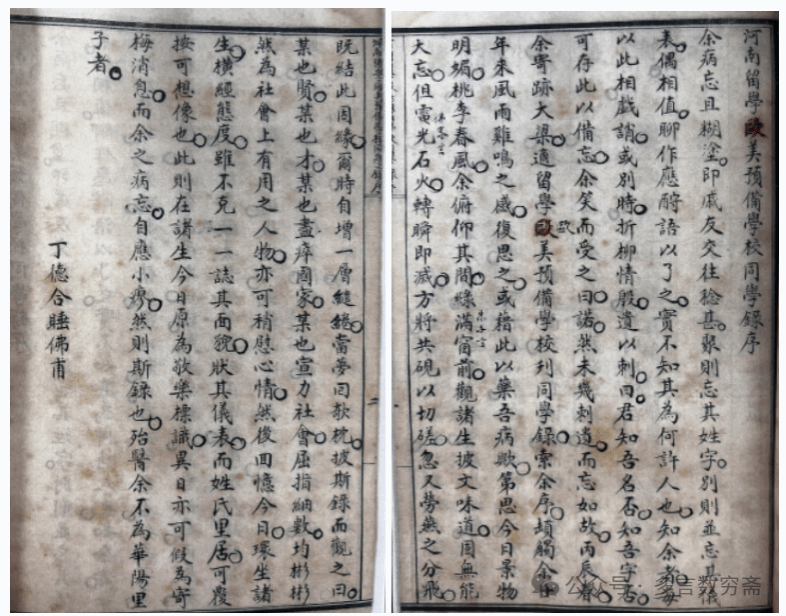 河南留學歐美預備學校同學錄序
余病忘且糊塗即戚友交往稔甚艱則忘其姓字別則並忘其儀
表偶相值聊作應酧語以了之實不知其為何許人也知余者每
以此相戲誚或別時折柳情殷遺以刺曰君知吾名否知吾字否
可存此以備忘余笑而受之曰諾然未幾刺遺而忘如故丙辰春
余寄跡大梁適留學歐美預備學校刋同學錄索余序頃觸余
年来風雨雞鳴之感復思之或藉此以藥吾病歟第思今日景物
明媚桃李春風余俯仰其間綠滿窗前觀諸生披文味道固無能
大忘但電光石火轉瞬即滅方將共硯以切磋忽又勞燕之分飛
既結此因緣爾時自增一層繾綣當夢囘欹枕披斯錄而觀之曰
某也賢某也才某也盡瘁國家某也宣力社會屈指細數均彬彬
然為社會上有用之人物亦可稍慰心情然後囬憶今日環坐諸
生橫經態度雖不克一一誌其面貌狀其儀表而姓氏里居可覆
按可想像也此則在諸生今日原為敬樂標識異日亦可假為寄
梅消息而余之病忘自應小瘳然則斯錄也殆醫余不為華陽里
子者
丁德合睡佛甫
歐
公众号·多言数穷斋